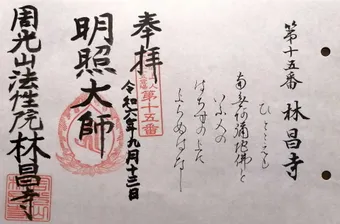 第十五番 林昌寺
ひとこゑも
南無阿彌陀佛と
いふ人の
はちすの上に
のぼらぬはなし
奉拝
第十五番
令和六年九月十三日
明照大師
周光山法性院林昌寺